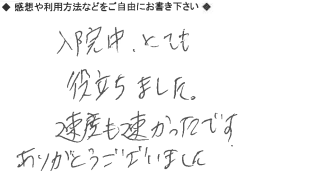 ◆ 感想や利用方法などをご自由にお書き下さい ◆
入院中、とても
役立ちました。
速度も速かったです。
ありがとうございました